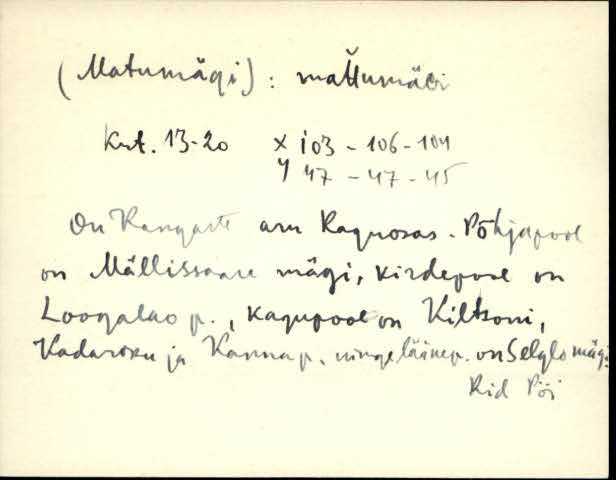 (Matumägi) : mattumäGi
Krt. 13-20 x 103 - 106 - 104
y 47 - 47 - 45
On Kangaste aru Kaguosas. Põhjapool
on Mällissaare mägi, kirdepool on
Loogalao p., kagupool on Kiltsoni,
Kadaroku ja Kanna p. ning läänep. on Selgls mägi.
Rid Pöi